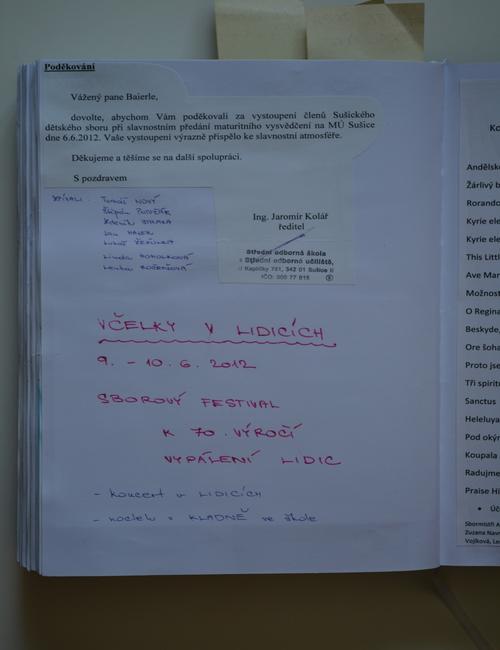 Poděkování
Vážený pane Baierle,
dovolte, abychom Vám poděkovali za vystoupení členů Sušického
dětského sboru při slavnostním předání maturitního vysvědčení na MÚ Sušice
dne 6.6.2012. Vaše vystoupení výrazně přispělo ke slavnostní atmosféře.
Děkujeme a těšíme se na další spolupráci.
S pozdravem
ZPÍVALI: Tomáš NOVÝ
Zdeněk
Jan
Lukáš
Linda
Lenka
Ing. Jaromír Kolář
ředitel
Střední odborná škola
a Střední odborné učiliště,
U Kapličky 761, 342 01 Sušice II
IČO: 000 77 615
VČELKY V LIDICÍCH
9. - 10. 6. 2012
SBOROVÝ FESTIVAL
K 70. VÝROČÍ
VYPÁLENÍ LIDIC
- koncert v LIDICÍCH
- nocleh v KLADNĚ ve škole
Ko
Anděls
Žárlivý b
Rorando
Kyrie ele
Kyrie ele
This Littl
Ave Mar
Možnost
O Regina
Beskyde,
Ore šoha
Proto jse
Tři spirit
Sanctus
Heleluya
Pod okýr
Koupala
Radujme
Praise Hi
• Úč
Sbormistři A
Zuzana Nav
Vojíková, Le